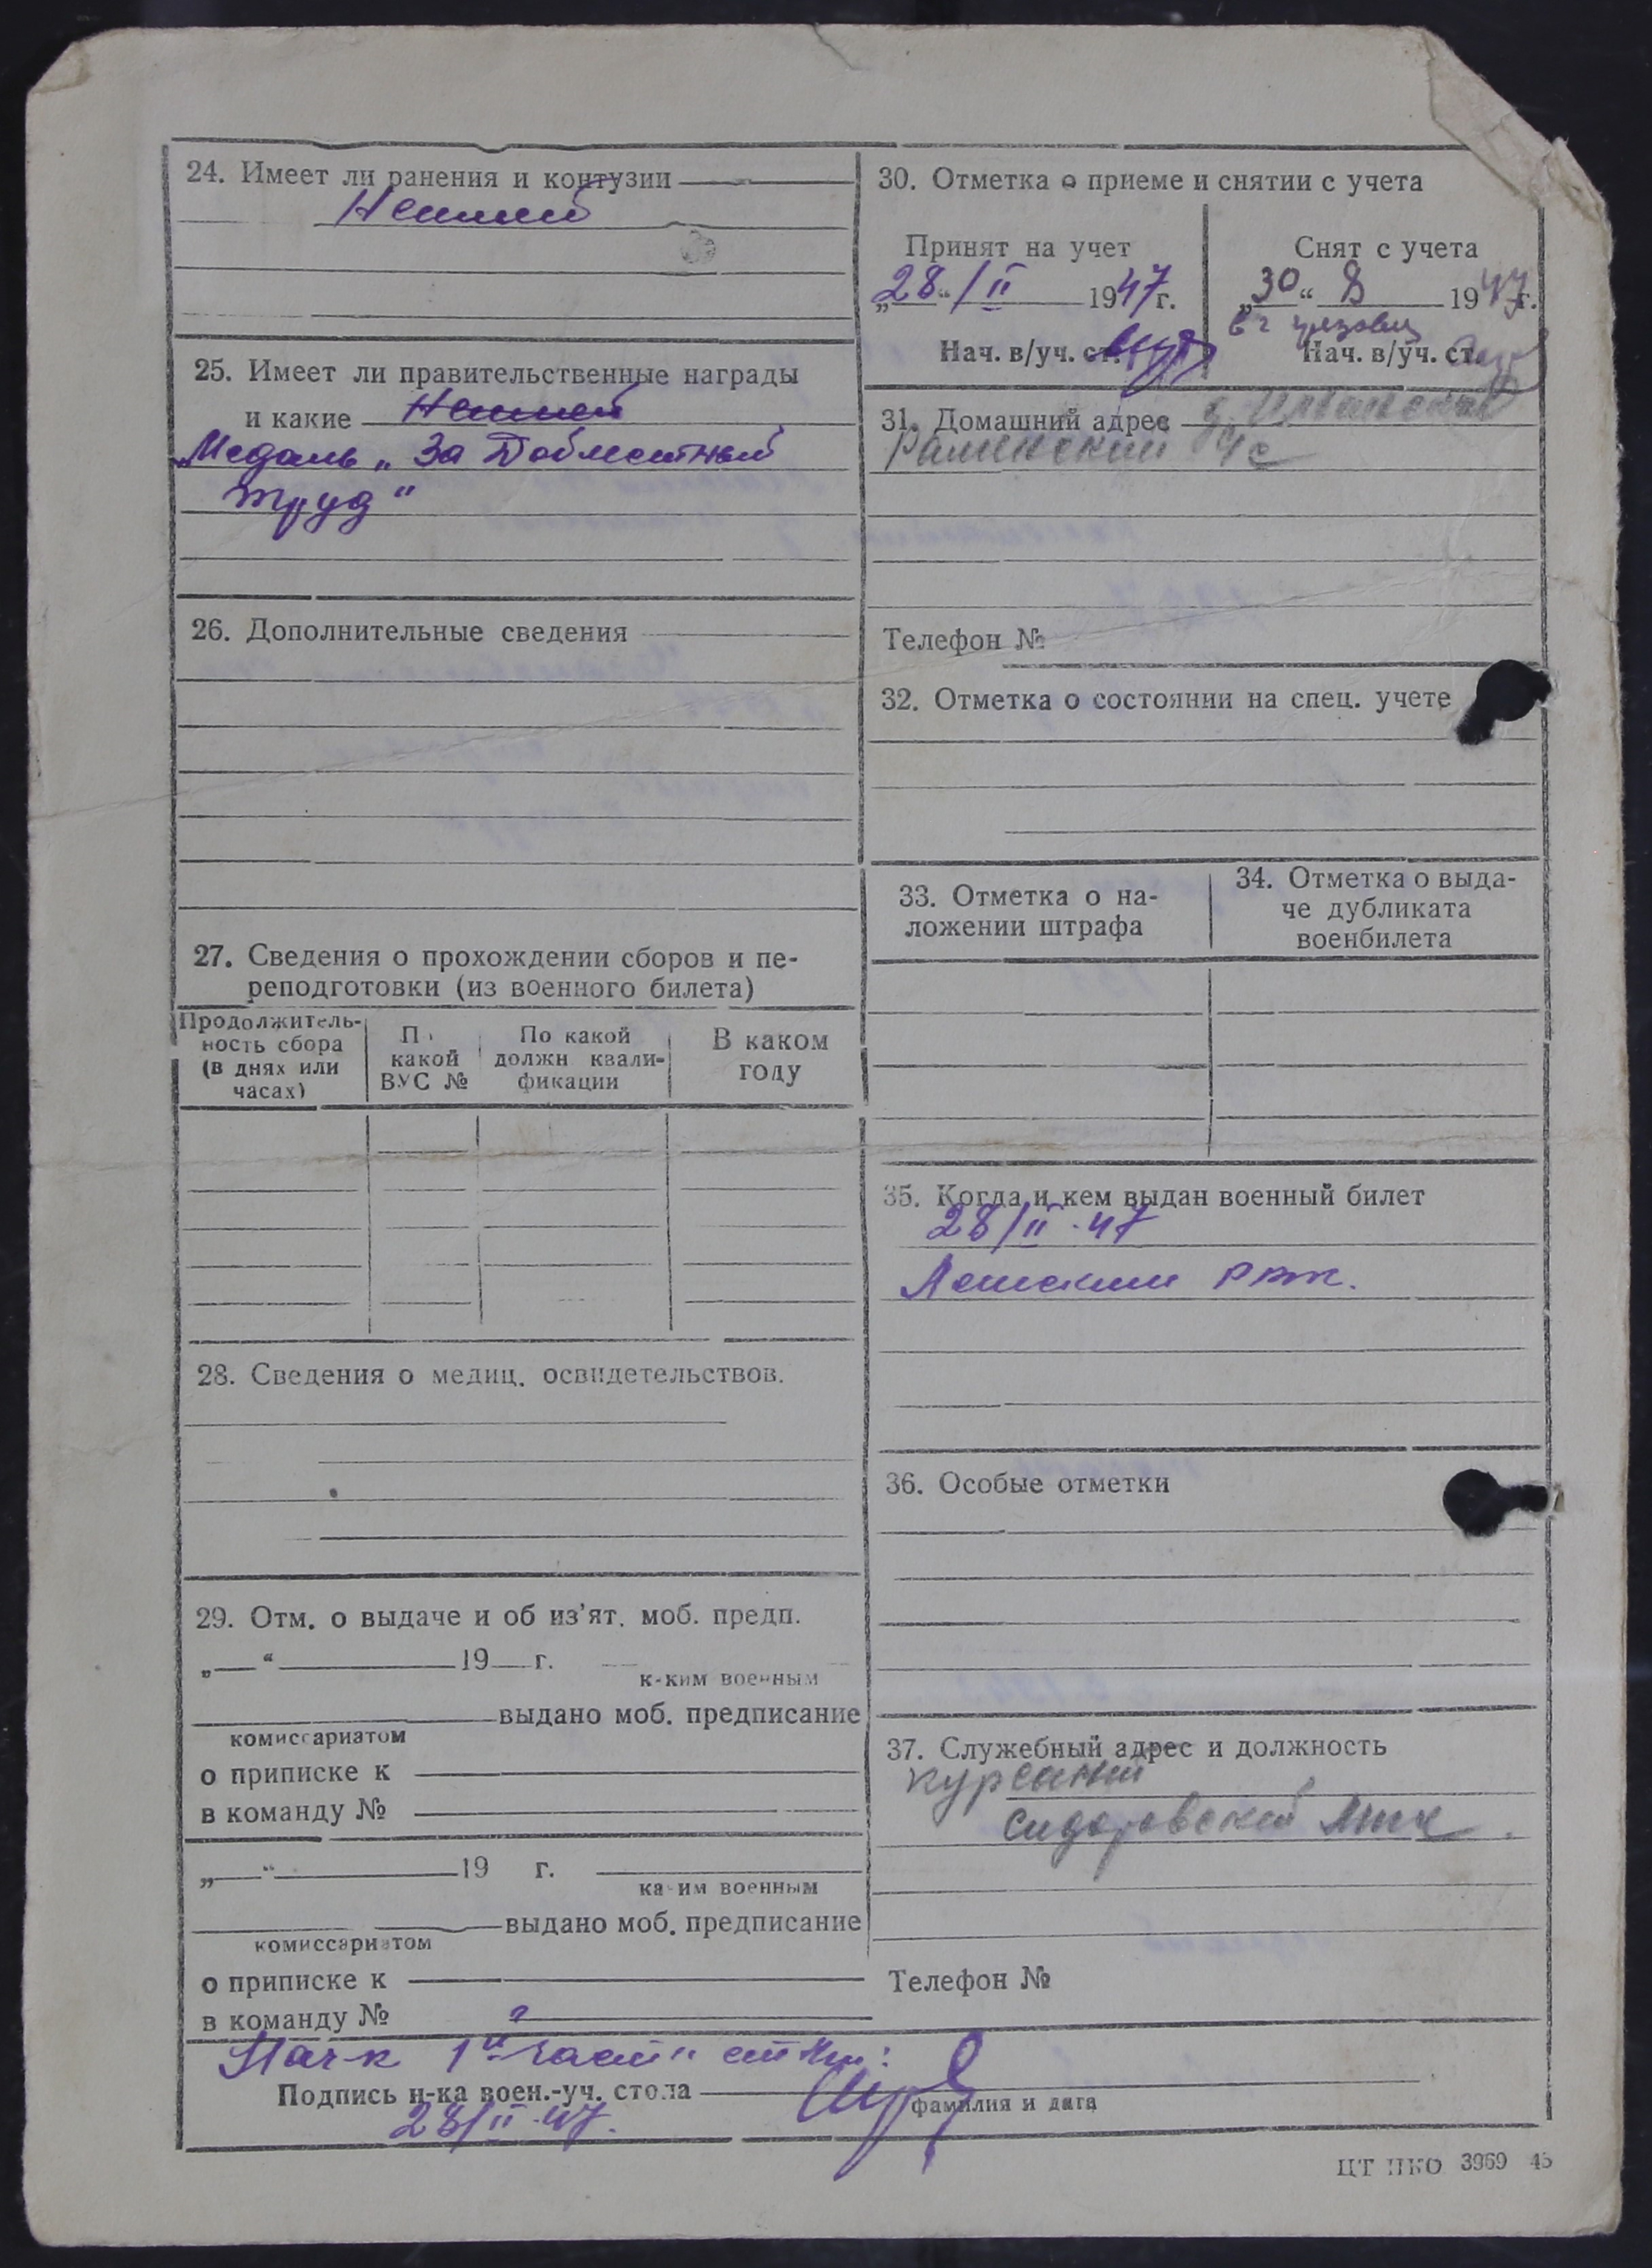 24. Имеет ли ранения и контузии
Не имеет
25. Имеет ли правительственные награды
и какие Не имеет
Медаль „За Доблестный
труд“
26. Дополнительные сведения
27. Сведения о прохождении сборов и пе-
реподготовки (из военного билета)
Продолжитель-
ность сбора
(в днях или
часах)
П
какой
ВУС №
По какой
должн квали-
фикации
В каком
году
28. Сведения о медиц. освидетельствов.
29. Отм. о выдаче и об из'ят. моб. предп.
„ “ 19 г.
к-ким военным
выдано моб. предписание
комиссариатом
о приписке к
в команду №
„ “ 19 г.
ка-им военным
выдано моб. предписание
комиссариатом
о приписке к
в команду №
30. Отметка о приеме и снятии с учета
Принят на учет
„28“/II 1947г.
Нач. в/уч. ст.
Снят с учета
„30“ 8 1947г.
Нач. в/уч. ст.
31. Домашний адрес д.
Раменский с/с
Телефон №
32. Отметка о состоянии на спец. учете
33. Отметка о на-
ложении штрафа
34. Отметка о выда-
че дубликата
военбилета
35. Когда и кем выдан военный билет
28/II-47
РВК.
36. Особые отметки
37. Служебный адрес и должность
курсант
Сидоровской
Телефон №
Нач-к 1й части
Подпись н-ка воен.-уч. стола
фамилия и дата
28/II-47.
ЦТ НКО 3969 45